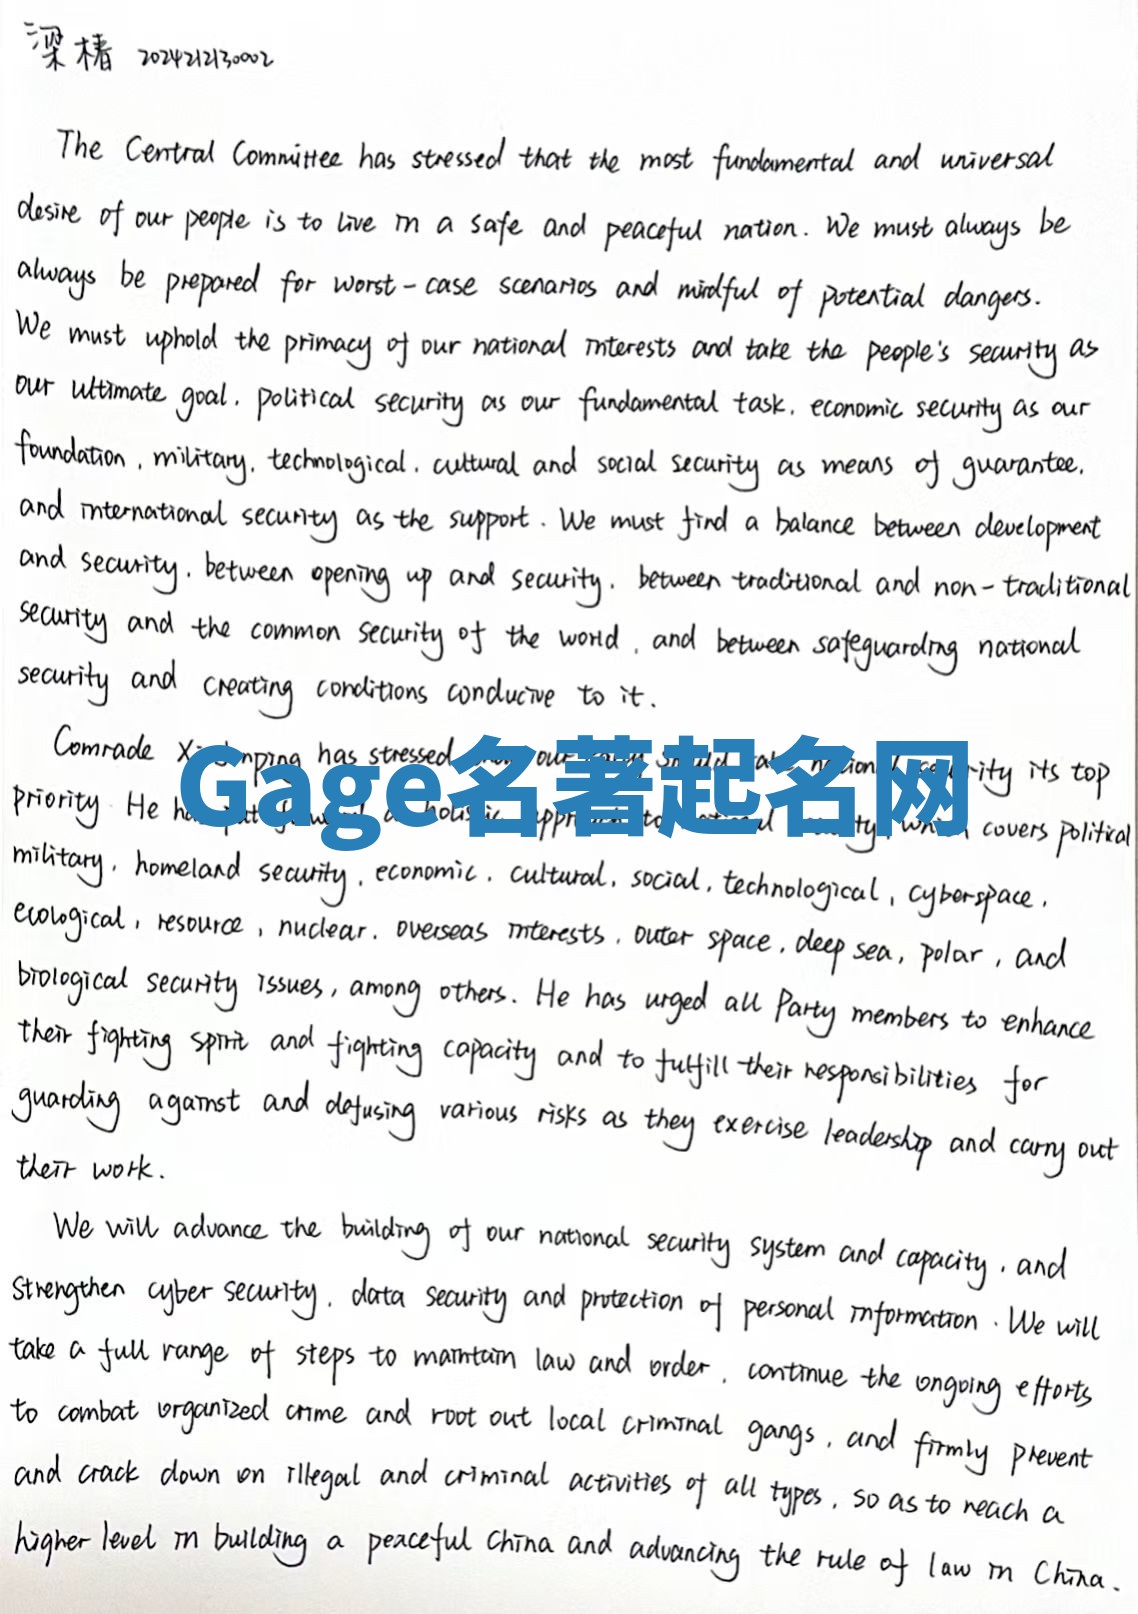 梁椿 2024212130002
The Central Committee has stressed that the most fundamental and universal
desire of our people is to live in a safe and peaceful nation. We must always be
always be prepared for worst-case scenarios and mindful of potential dangers.
We must uphold the primacy of our national interests and take the people's security as
our ultimate goal, political security as our fundamental task, economic security as our
foundation, military, technological, cultural and social security as means of guarantee,
and international security as the support. We must find a balance between development
and security, between opening up and security, between traditional and non-traditional
security and the common security of the world, and between safeguarding national
security and creating conditions conducive to it.
Comrade has stressed our its top
priority. He covers political
Gage名著起名网
military, homeland security, economic, cultural, social, technological, cyberspace,
ecological, resource, nuclear, overseas interests, outer space, deep sea, polar, and
biological security issues, among others. He has urged all Party members to enhance
their fighting spirit and fighting capacity and to fulfill their responsibilities for
guarding against and defusing various risks as they exercise leadership and carry out
their work.
We will advance the building of our national security system and capacity, and
strengthen cyber security, data security and protection of personal information. We will
take a full range of steps to maintain law and order, continue the ongoing efforts
to combat organized crime and root out local criminal gangs, and firmly prevent
and crack down on illegal and criminal activities of all types, so as to reach a
higher level in building a peaceful China and advancing the rule of law in China.